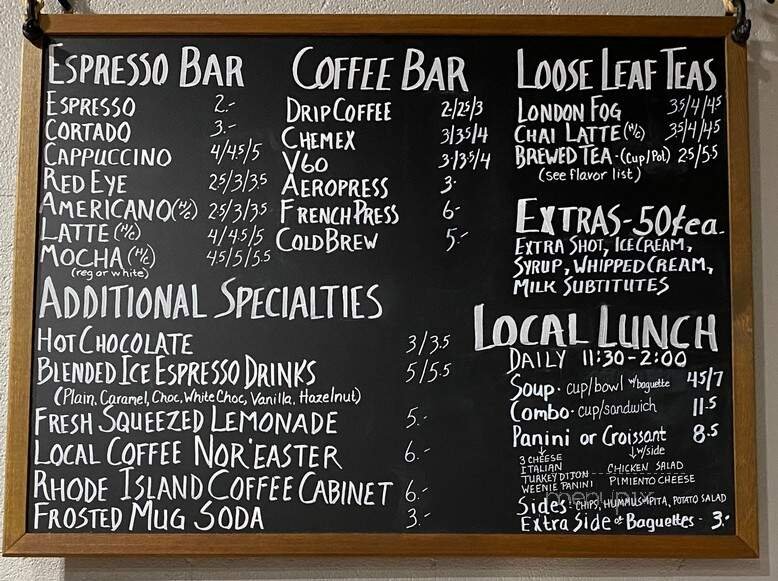 ESPRESSO BAR
ESPRESSO 2.-
CORTADO 3.-
CAPPUCCINO 4/4.5/5
RED EYE 2.5/3/3.5
AMERICANO (H/C) 2.5/3/3.5
LATTE (H/C) 4/4.5/5
MOCHA (H/C) 4.5/5/5.5
(reg or white)
COFFEE BAR
DRIP COFFEE 2-/2.5/3
CHEMEX 3/3.5/4
V60 3-/3.5/4
AEROPRESS 3-
FRENCH PRESS 6-
COLD BREW 5.-
LOOSE LEAF TEAS
LONDON FOG 3.5/4/4.5
CHAI LATTE (H/C) 3.5/4/4.5
BREWED TEA - (Cup/Pot) 2.5/5.5
(see flavor list)
EXTRAS - 50¢ ea.
EXTRA SHOT, ICE CREAM,
SYRUP, WHIPPED CREAM,
MILK SUBTITUTES
ADDITIONAL SPECIALTIES
HOT CHOCOLATE 3/3.5
BLENDED ICE ESPRESSO DRINKS 5/5.5
(Plain, Caramel, Choc, White Choc, Vanilla, Hazelnut)
FRESH SQUEEZED LEMONADE 5.-
LOCAL COFFEE NOR'EASTER 6.-
RHODE ISLAND COFFEE CABINET 6.-
FROSTED MUG SODA 3.-
LOCAL LUNCH
DAILY 11:30-2:00
Soup - cup/bowl w/baguette 4.5/7
Combo - cup/sandwich 11.5
Panini or Croissant 8.5
w/side
3 CHEESE
ITALIAN
TURKEY DIJON
WEENIE PANINI
CHICKEN SALAD
PIMIENTO CHEESE
menupix
Sides: CHIPS, HUMMUS+PITA, POTATO SALAD
Extra Side of Baguettes - 3.-